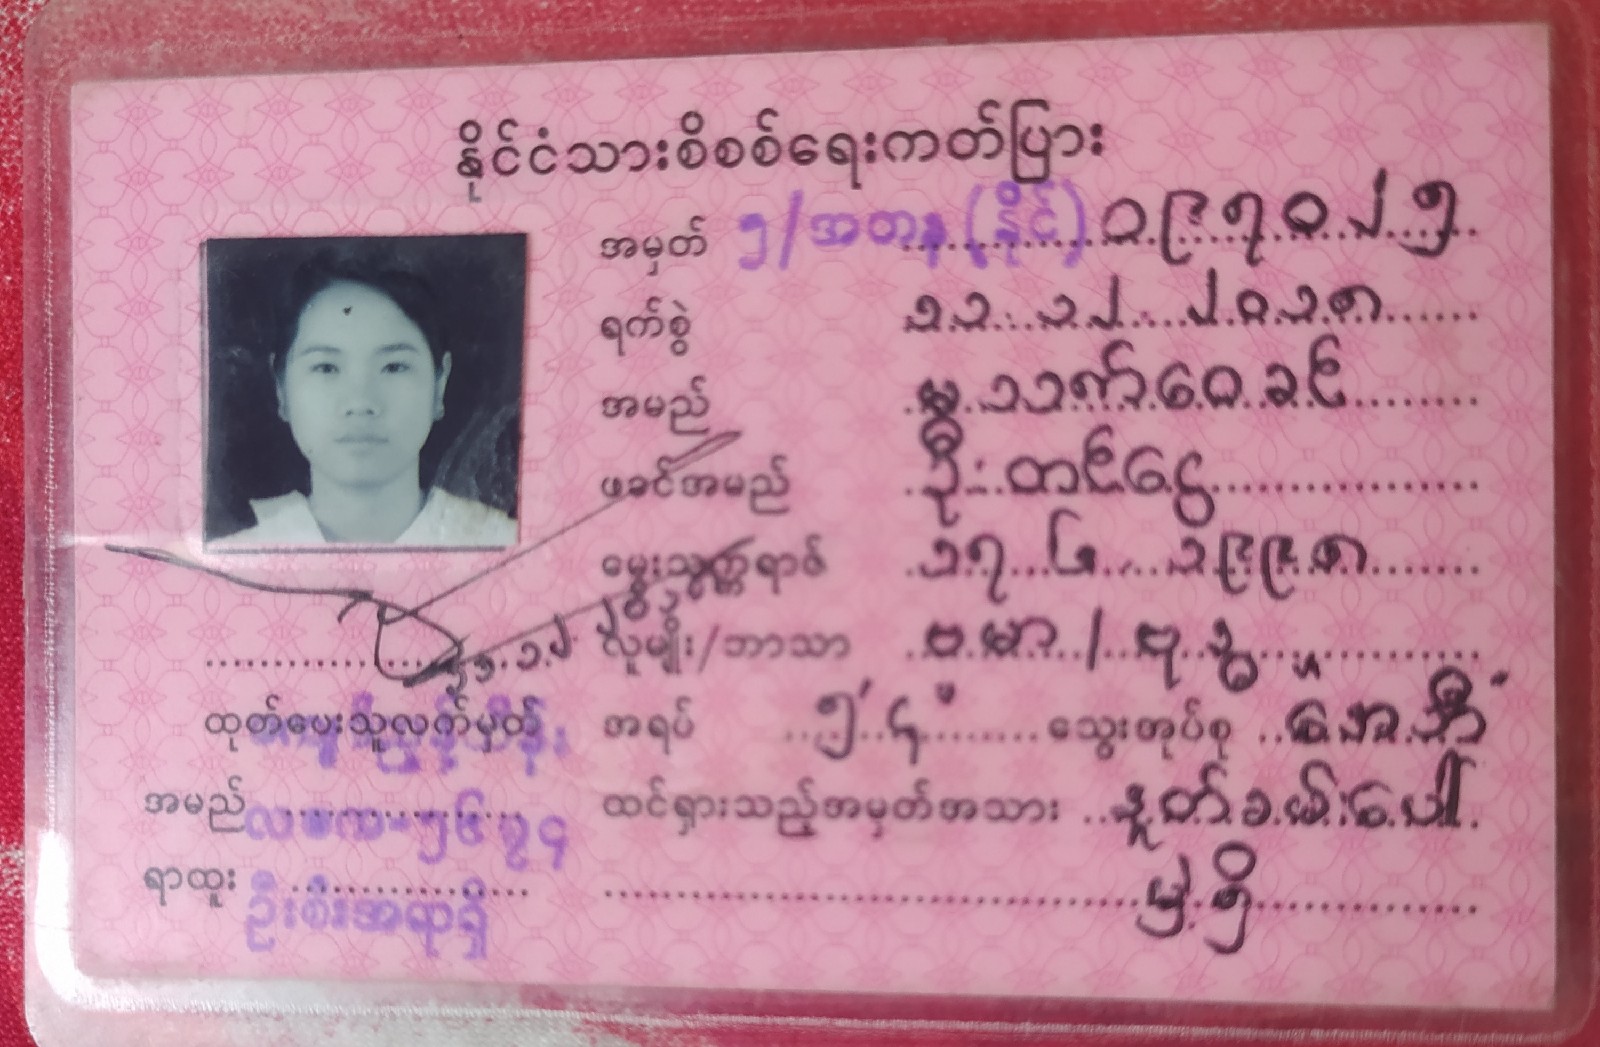 နိုင်ငံသားစိစစ်ရေးကတ်ပြား
အမှတ် ၅/အတန(နိုင်)၁၉၇၀၂၅
ရက်စွဲ ၁၁.၁၂.၂၀၁၈
အမည် မသက်ဝေခင်
ဖခင်အမည် ဦးတင်ငွေ
မွေးသက္ကရာဇ် ၁၇.၆.၁၉၉၈
လူမျိုး/ဘာသာ ဗမာ/ဗုဒ္ဓ
အရပ် ၅'၄" သွေးအုပ်စု "အေဘီ"
ထင်ရှားသည့်အမှတ်အသား နှုတ်ခမ်းပေါ်
မှဲ့ရှိ
ထုတ်ပေးသူလက်မှတ်
အမည် လဝက-၅၆၇၄
ရာထူး ဦးစီးအရာရှိ